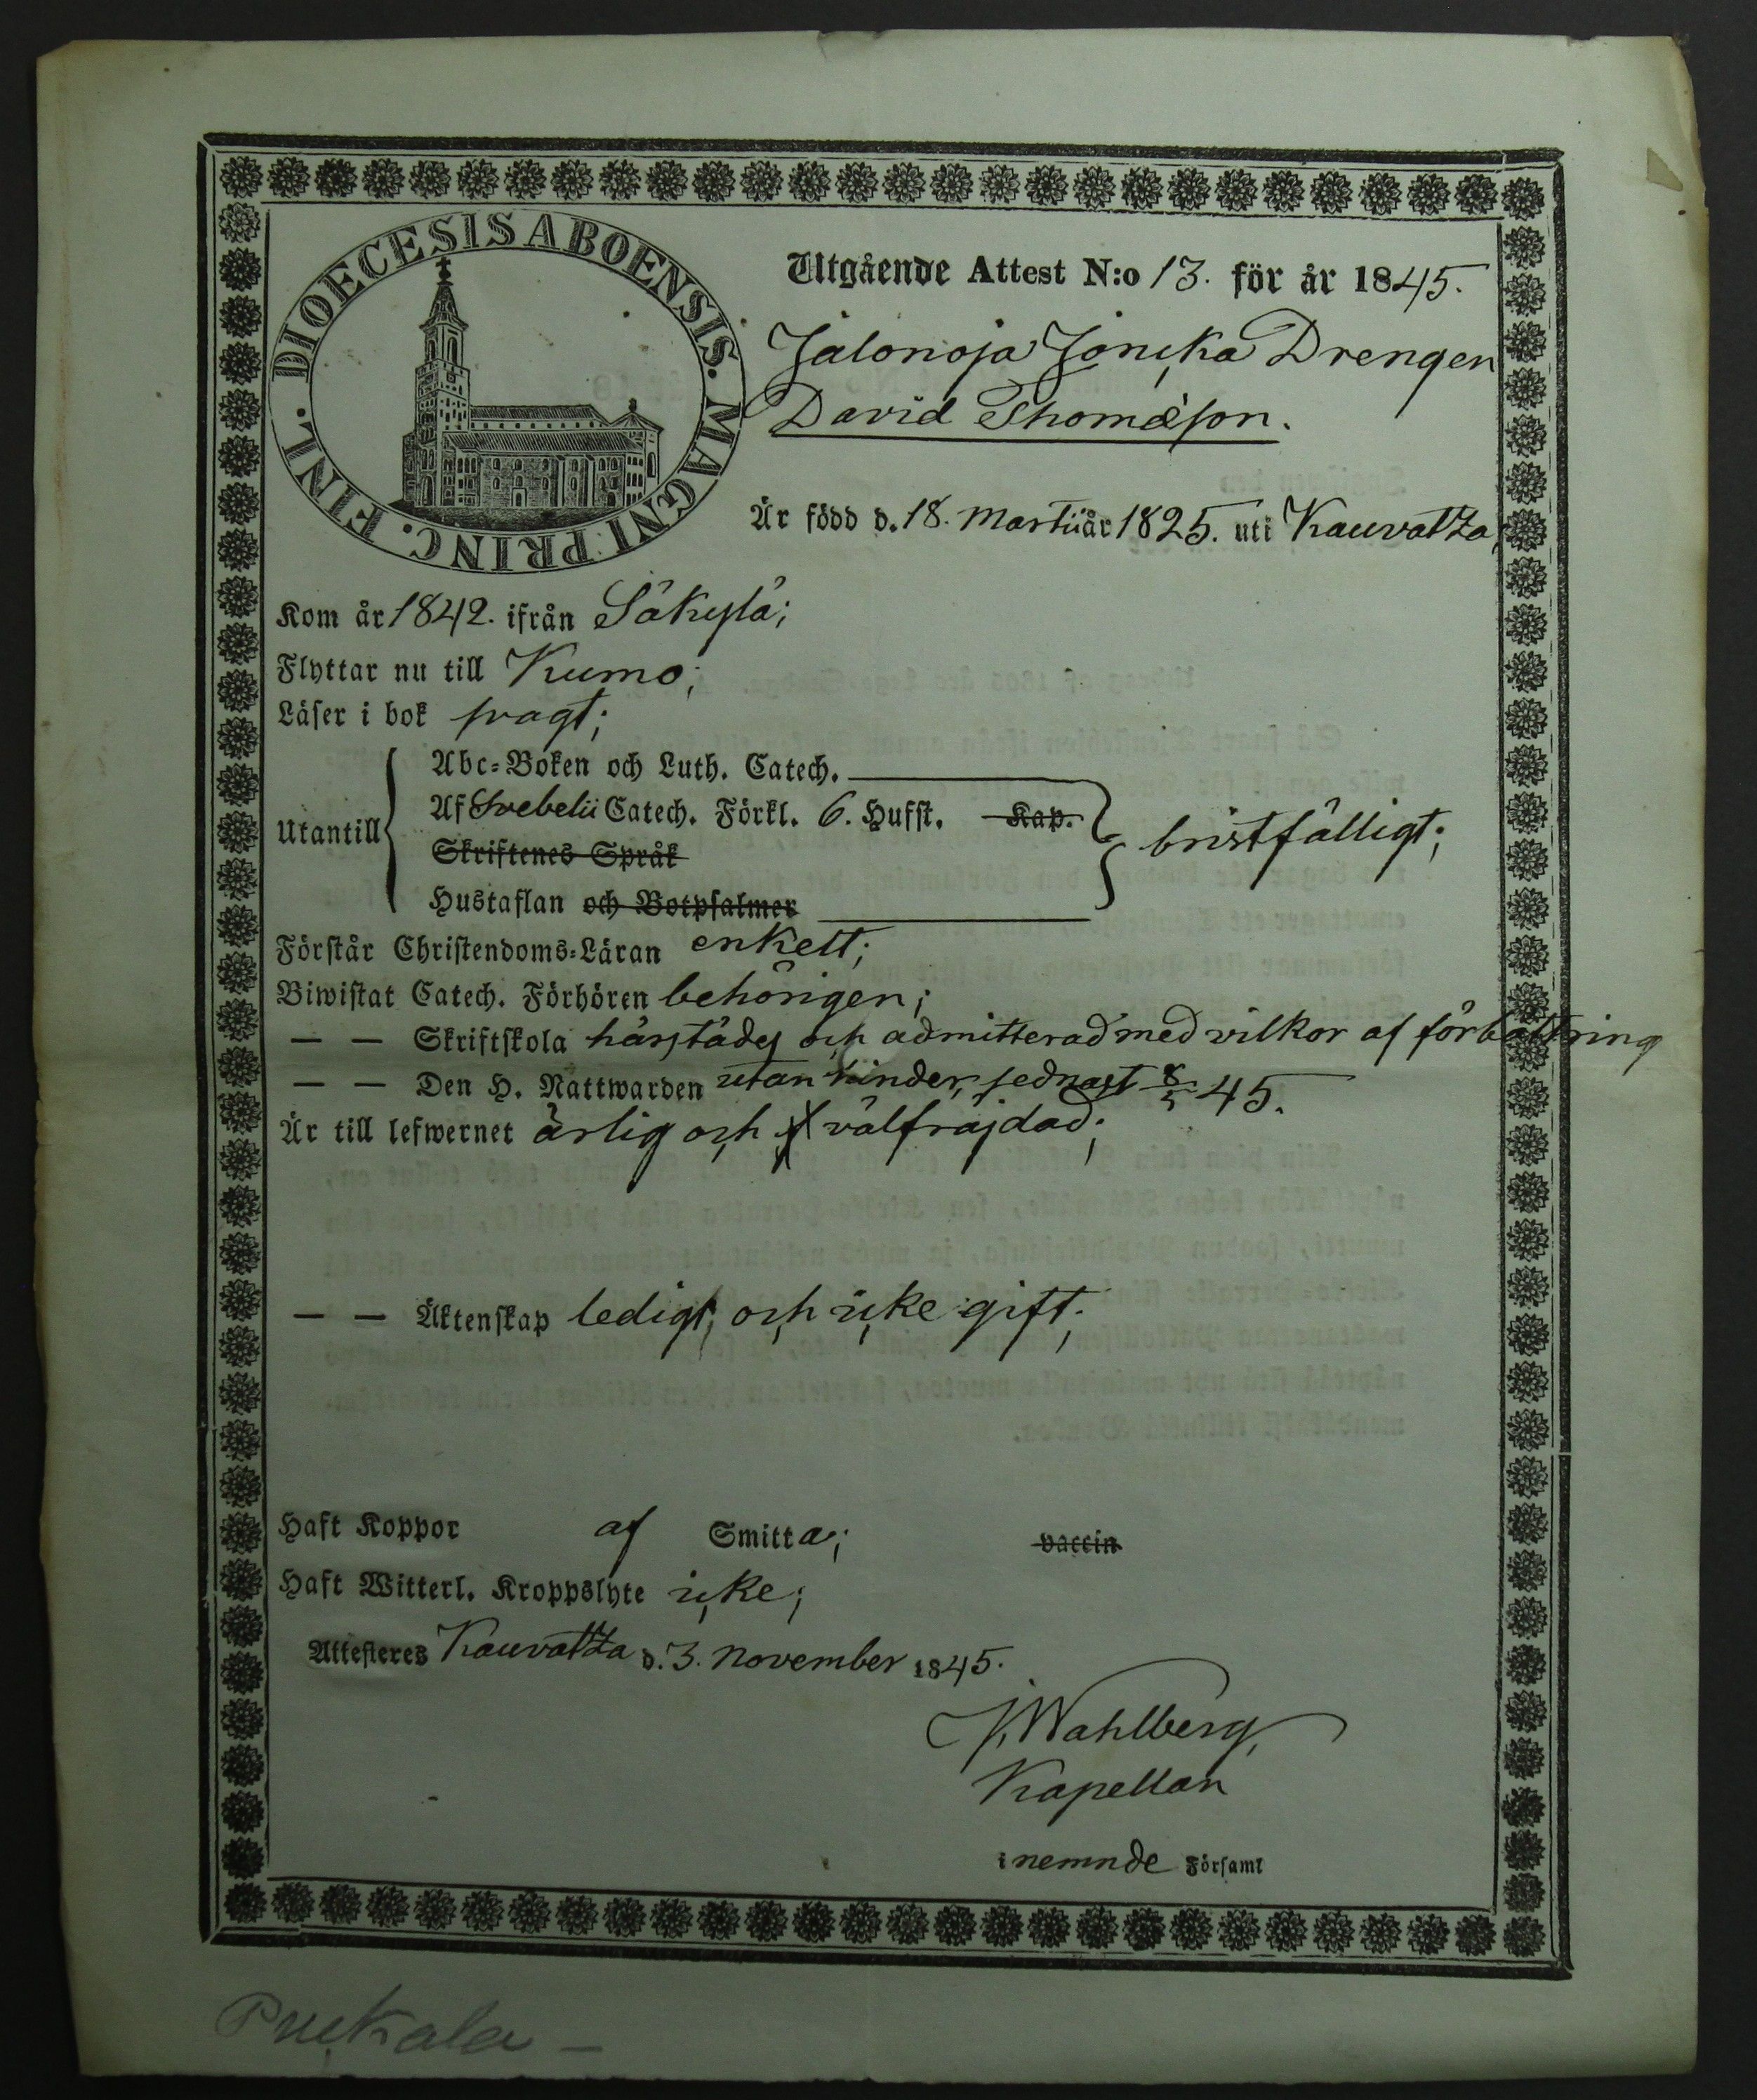 DIOECESIS ABOENSIS. MAGNI PRINC. FINL.
Utgående Attest N:o 13. för år 1845.
Jalonoja Joncka Drengen
David Thomæson.
Är född d. 18. Martii år 1825. uti Kauvatza,
Kom år 1842. ifrån Säkylä;
Flyttar nu till Kumo;
Läser i bok svagt;
Utantill
Abc-Boken och Luth. Catech.
Af Svebelii Catech. Förkl. 6. Hufst. Kap.
Skriftenes Språk
Hustaflan och Botpsalmer
bristfälligt;
Förstår Christendoms-Läran enkelt;
Biwistat Catech. Förhören behörigen;
— — Skriftskola härstädes och admitterad med vilkor af förbättring
— — Den H. Nattwarden utan hinder, sednast 8/5 45.
Är till lefwernet ärlig och välfräjdad;
— — Äktenskap ledig, och icke gift;
Haft Koppor af Smitta; vaccin
Haft Witterl. Kroppslyte icke;
Attesteres Kauvatza d. 3. November 1845.
J. Wahlberg,
Kapellan
i nemnde Församl
Puckala —